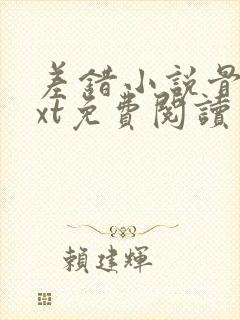 差錯小說骨
xt免費閱讀
賴建輝